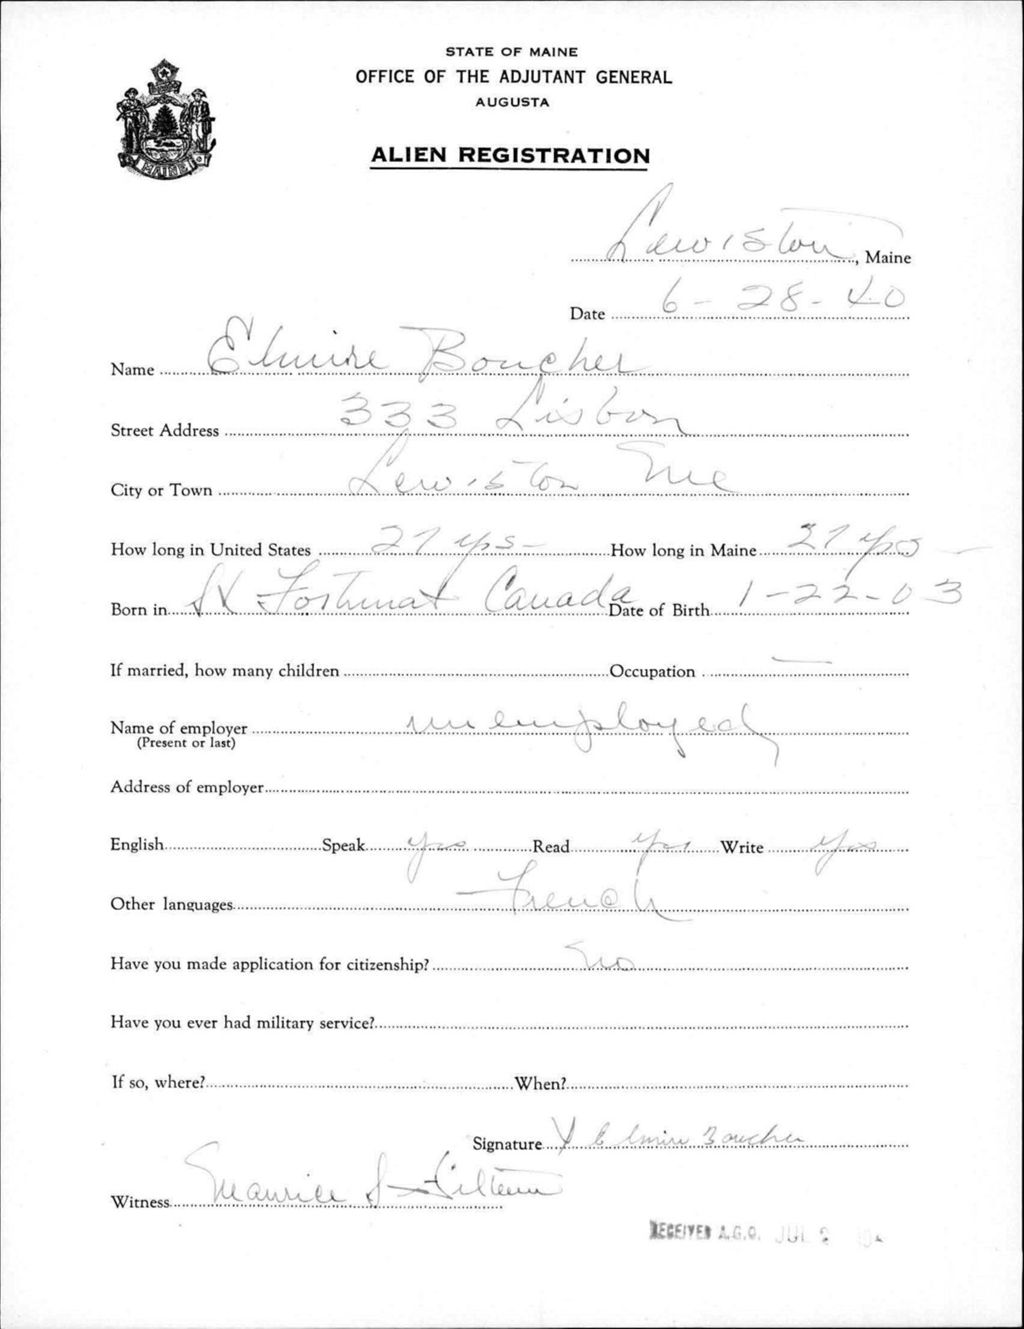 STATE OF MAINE
OFFICE OF THE ADJUTANT GENERAL
AUGUSTA
ALIEN REGISTRATION
MAINE
Lewiston, Maine
Date 6-28-40
Name Elmire Boucher
Street Address 333 Lisbon
City or Town Lewiston Me
How long in United States 27 yrs- How long in Maine 27 yrs
Born in St Fortunat Canada Date of Birth 1-22-03
If married, how many children Occupation —
Name of employer unemployed
(Present or last)
Address of employer
English Speak yes Read yes Write yes
Other languages French
Have you made application for citizenship? No
Have you ever had military service?
If so, where? When?
Signature X Elmire Boucher
Witness Maurice
RECEIVED A.G.O. JUL 2